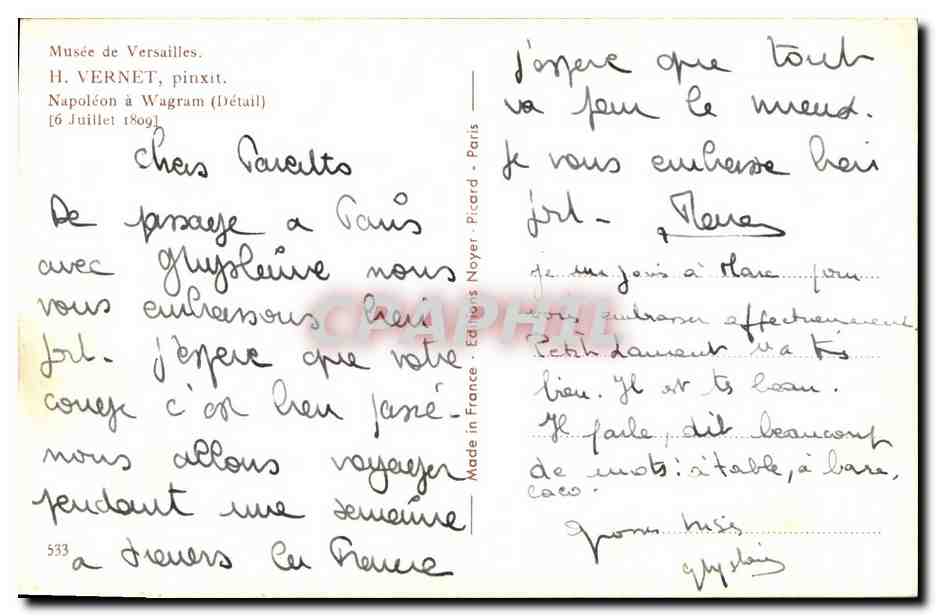 Musée de Versailles.
H. VERNET, pinxit.
Napoléon à Wagram (Détail)
[6 Juillet 1809]
Chers
De passage a Paris
avec Ghysleine nous
vous embrassons bien
fort - j'espere que votre
conge c'est bien passé -
nous allons voyager
pendant une semaine
a travers la France
533
Made in France - Editions Noyer - Picard - Paris
j'espere que tout
va pour le mieux.
Je vous embrasse bien
fort -
je me joins à Marc pour
vous embrasser affectueusement.
Petit Laurent va très
bien. Il est très beau.
Il parle, dit beaucoup
de mots : à table, à boire,
caco.
Grosses bises
Ghyslaine
CPAPHIL